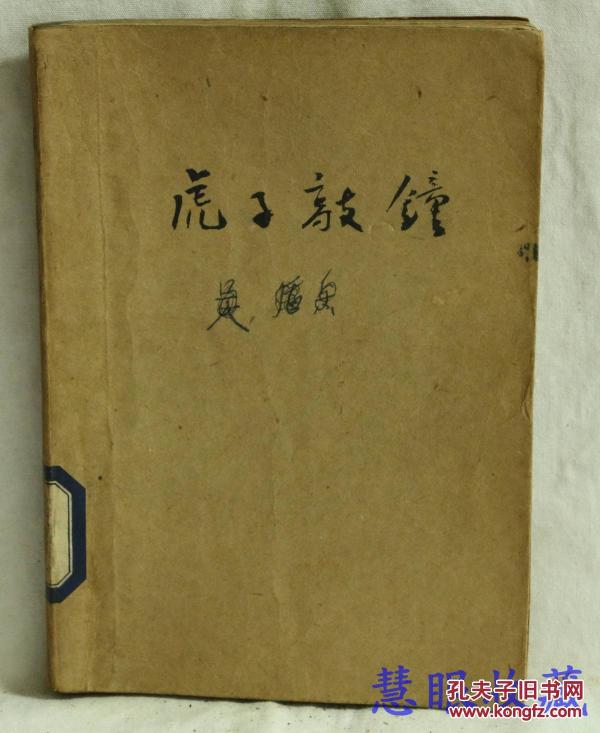 虎子敲鐘
慧眼收藏
孔夫子旧书网
www.kongfz.com